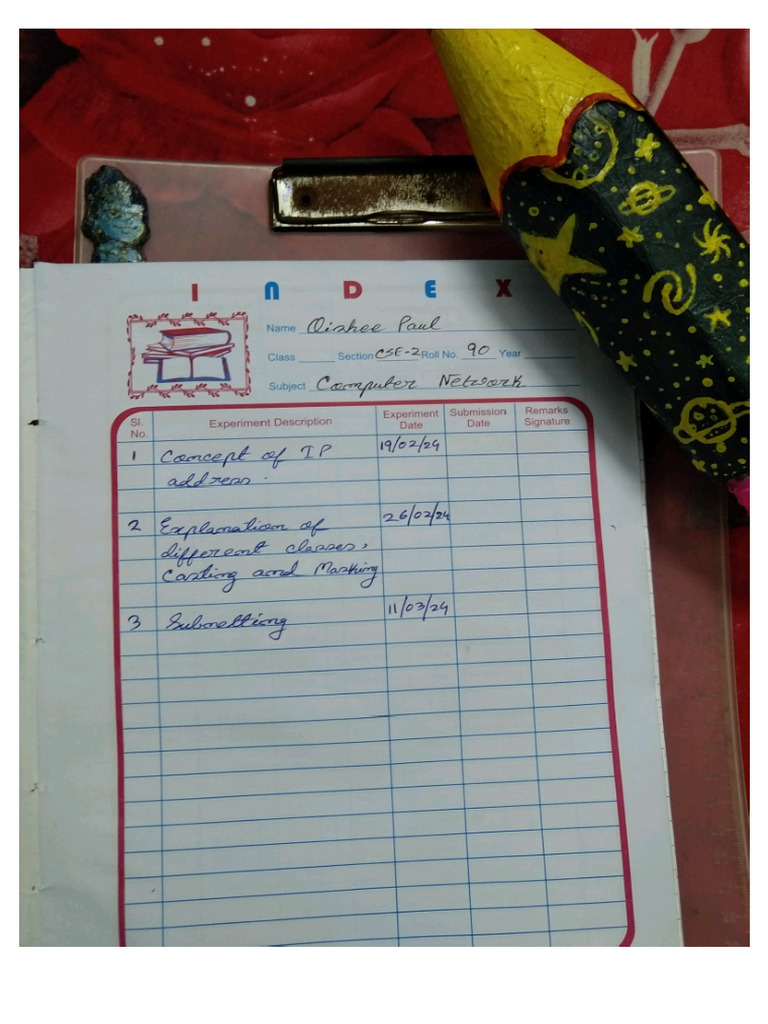 INDEX
Name Oishee Paul
Class Section CSE-2 Roll No. 90 Year
Subject Computer Network
Sl. No. Experiment Description Experiment Date Submission Date Remarks Signature
1 Concept of IP 19/02/24
address.
2 Explanation of 26/02/24
different classes,
Casting and Masking
3 Subnetting 11/03/24